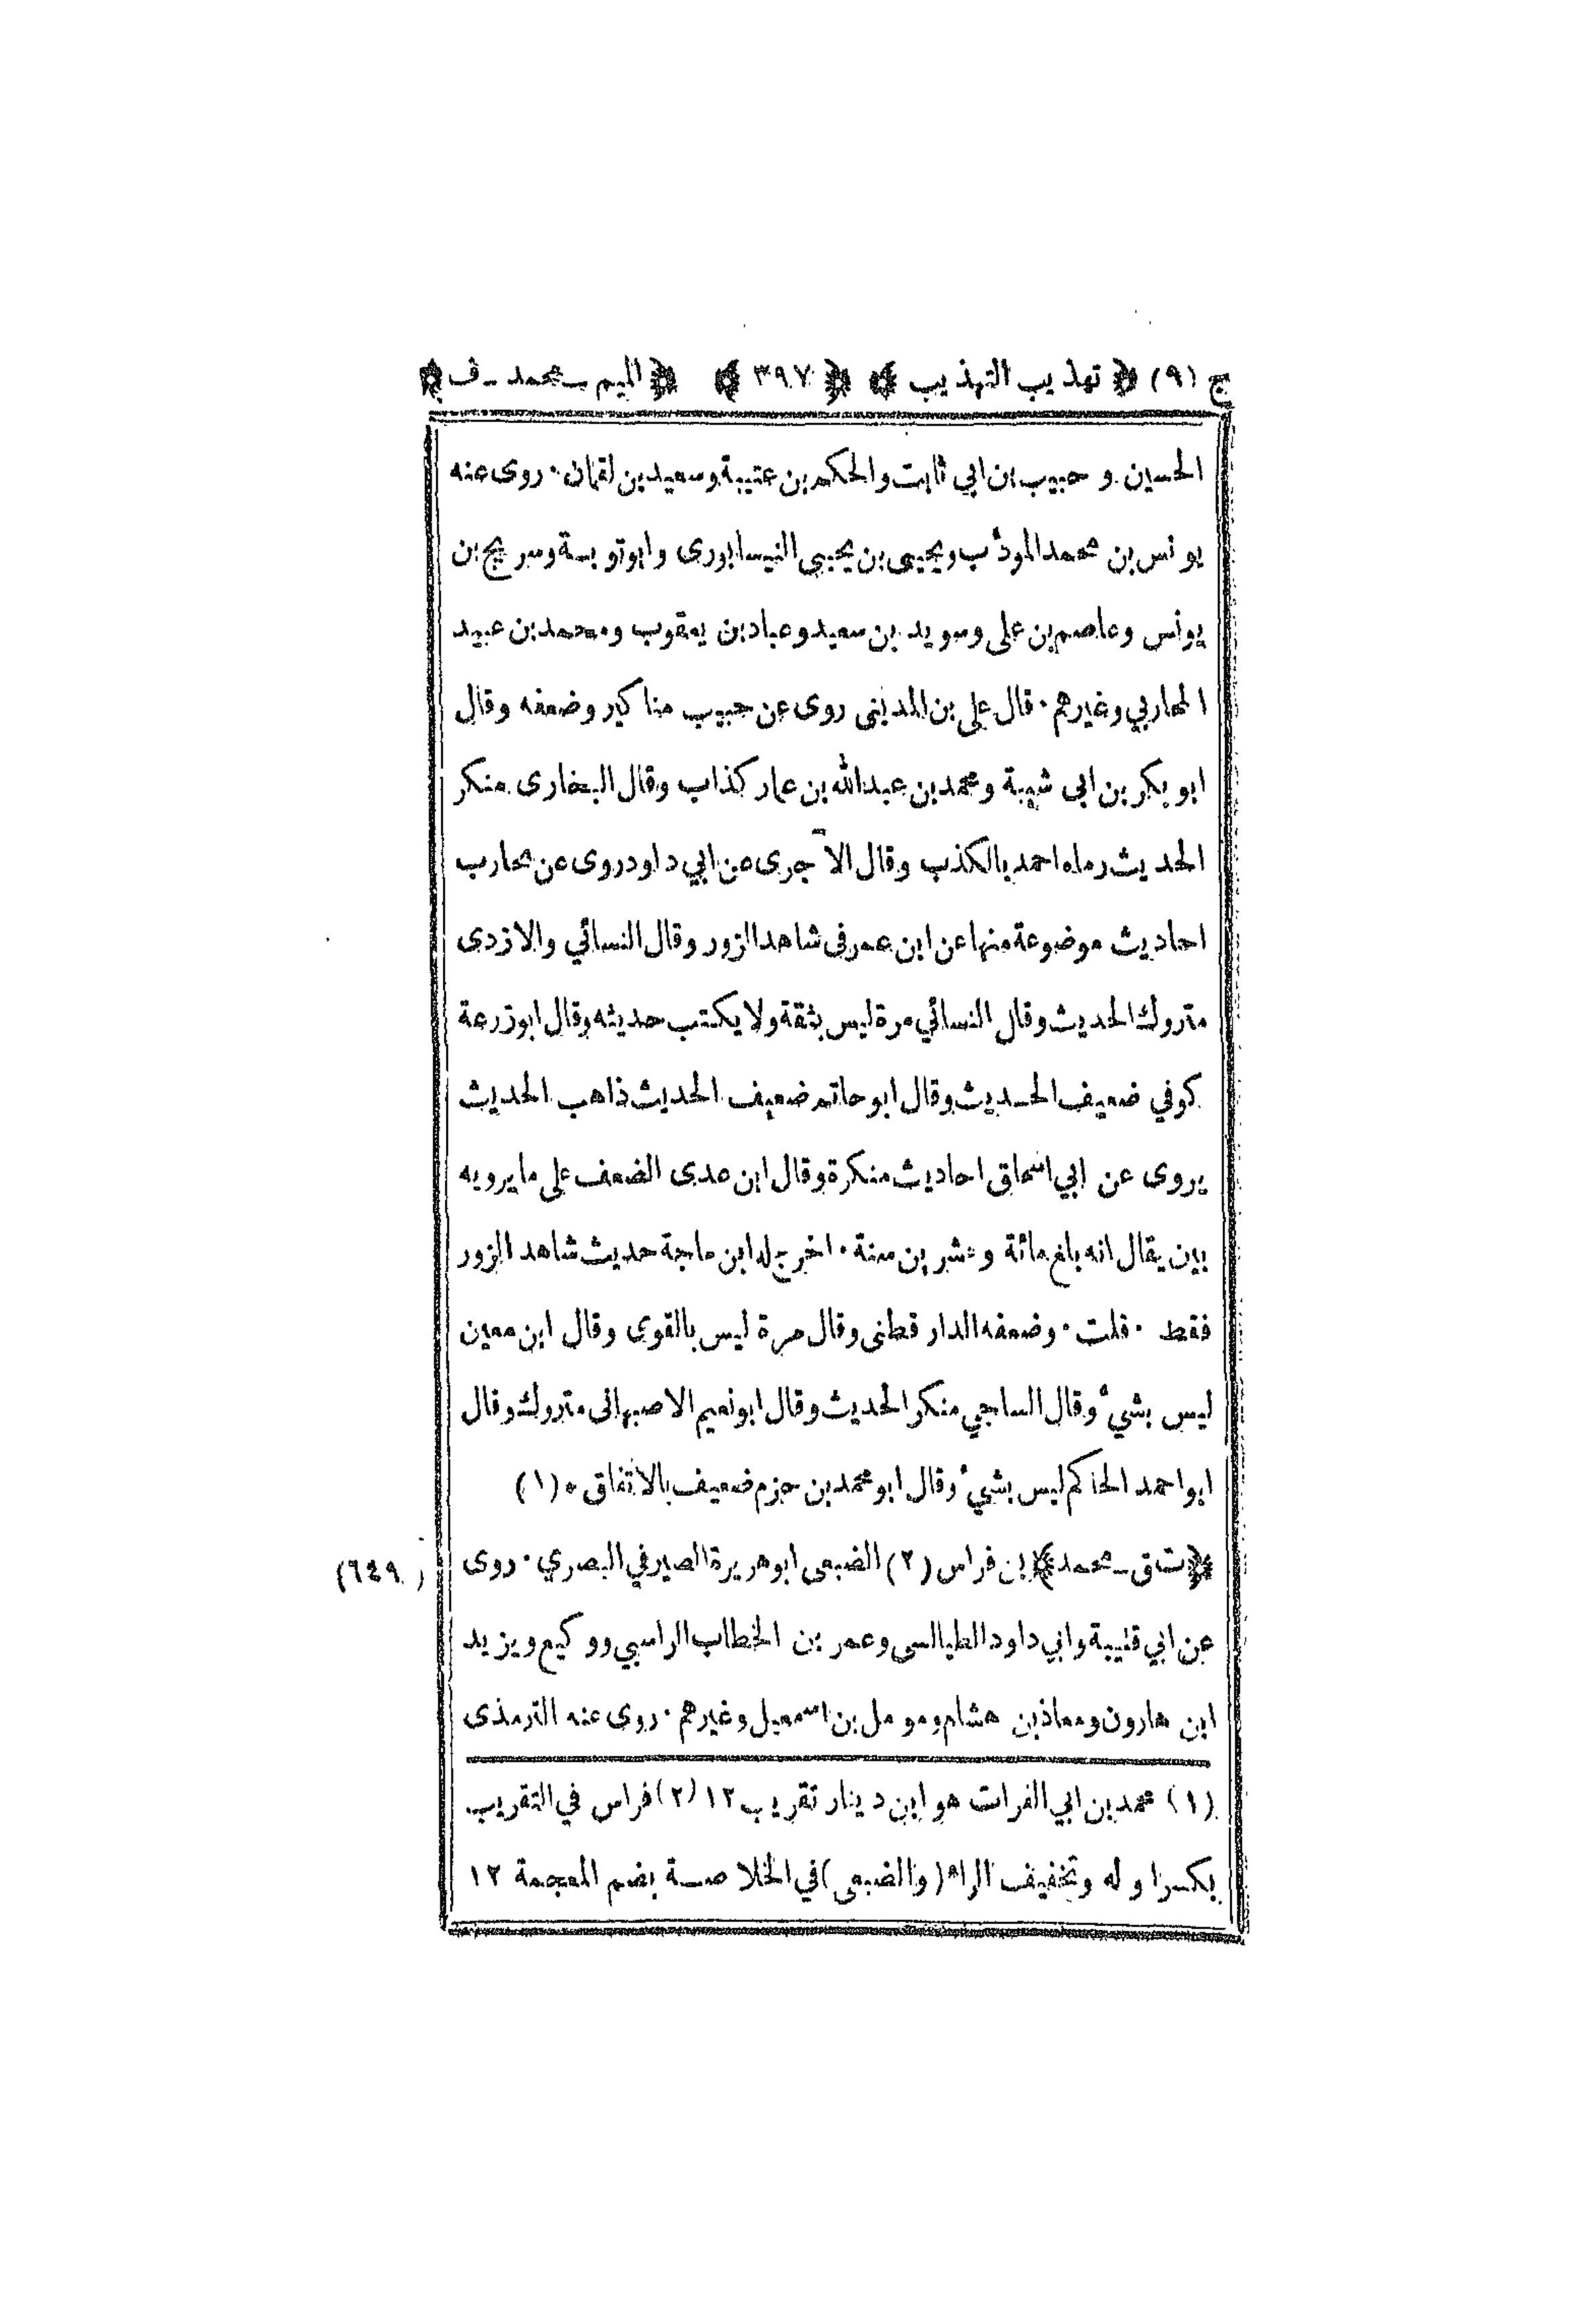 ج (٩) ﴿ تهذيب التهذيب ﴾ ﴿ ٣٩٧ ﴾ ﴿ الميم ـ محمد ـ ف ﴾
الحسين و حبيب بن ابي ثابت والحكم بن عتيبة وسعيد بن لقمان · روى عنه
يونس بن محمد المؤدب ويحيى بن يحيى النيسابورى وابوتوبة وسريج بن
يونس وعاصم بن على وسويد بن سعيد وعباد بن يعقوب ومحمد بن عبيد
المحاربي وغيرهم · قال على بن المدينى روى عن حبيب مناكير وضعفه وقال
ابو بكر بن ابى شيبة ومحمد بن عبدالله بن عمار كذاب وقال البخارى منكر
الحديث رماه احمد بالكذب وقال الآجرى عن ابي داود روى عن محارب
احاديث موضوعة منها عن ابن عمر فى شاهد الزور وقال النسائي والازدى
متروك الحديث وقال النسائي مرة ليس بثقة ولا يكتب حديثه وقال ابوزرعة
كوفي ضعيف الحديث وقال ابو حاتم ضعيف الحديث ذاهب الحديث
يروى عن ابي اسحاق احاديث منكرة وقال ابن عدى الضعف على ما يرويه
بين يقال انه بلغ مائة وعشرين سنة · اخرج له ابن ماجة حديث شاهد الزور
فقط · قلت · وضعفه الدار قطنى وقال مرة ليس بالقوى وقال ابن معين
ليس بشيء وقال الساجي منكر الحديث وقال ابو نعيم الاصبهانى متروك وقال
ابو احمد الحاكم ليس بشيء وقال ابو محمد بن حزم ضعيف بالاتفاق ٠ (١)
﴿ ت ق ـ محمد ﴾ بن فراس (٢) الضبعى ابو هريرة الصيرفي البصري · روى
(٦٤٩)
عن ابي قتيبة وابي داود الطيالسى وعمر بن الخطاب الراسبي ووكيع ويزيد
ابن هارون ومعاذ بن هشام ومومل بن اسمعيل وغيرهم · روى عنه الترمذى
(١) محمد بن ابي الفرات هو ابن دينار تقريب ١٢ (٢) فراس في التقريب
بكسر اوله وتخفيف الراء (والضبعى) في الخلاصة بضم المعجمة ١٢